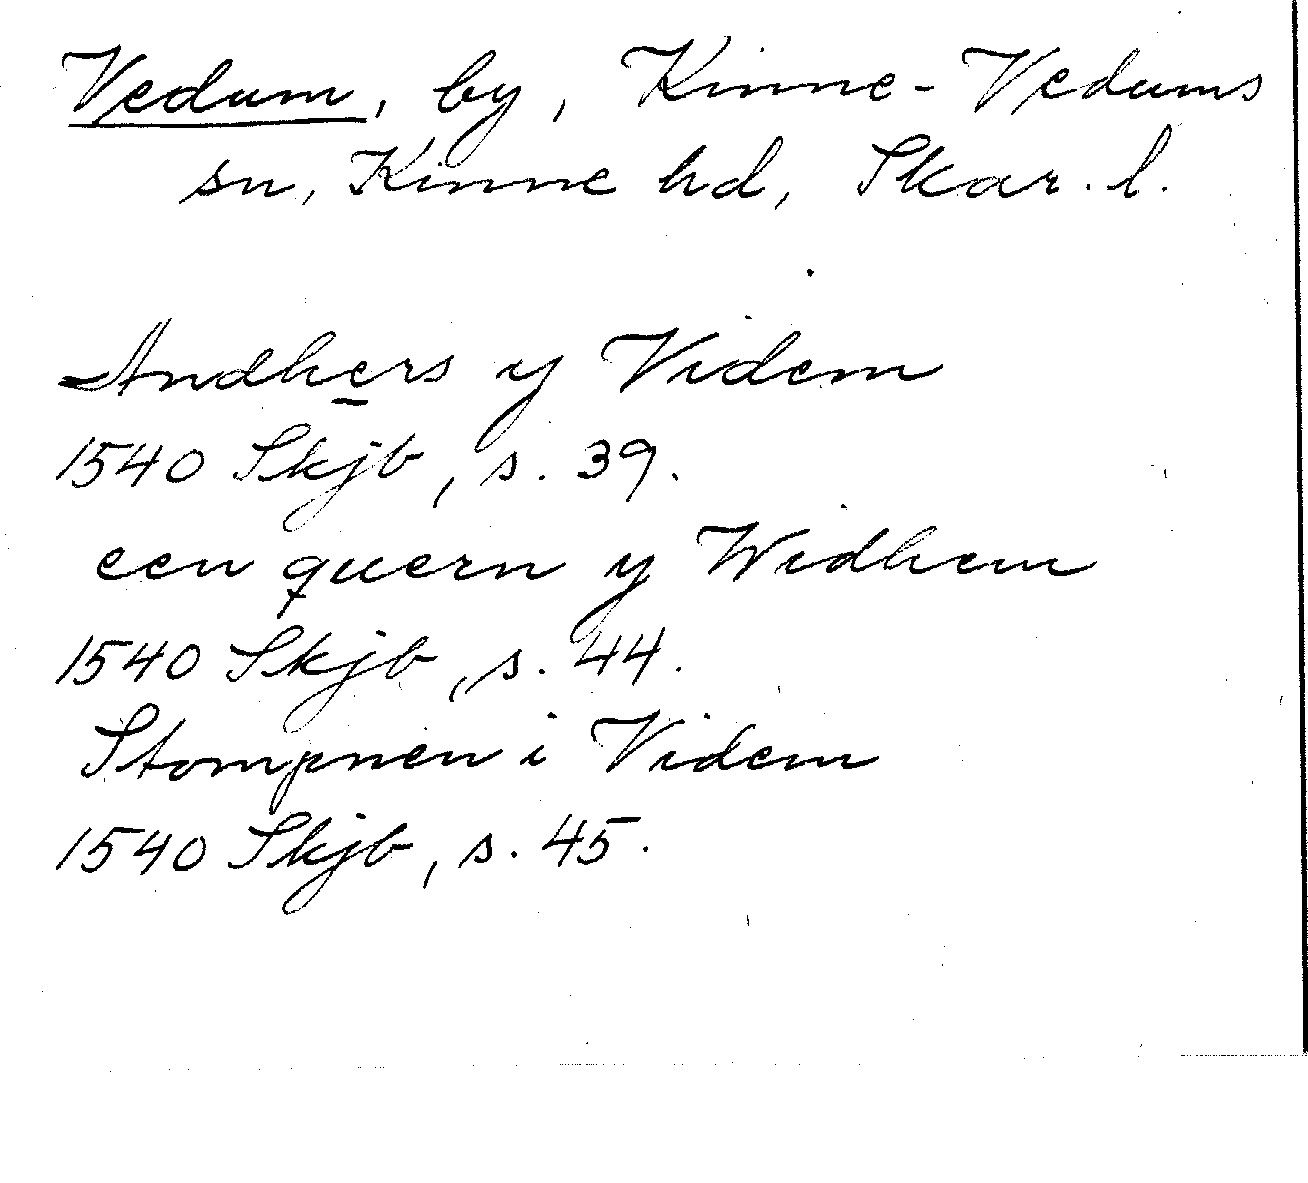 Vedum, by, Kinne-Vedums
sn, Kinne hd, Skar. l.
Andhers y Videm
1540 Skjb, s. 39.
een quern y Widhem
1540 Skjb, s. 44.
Stompnen i Videm
1540 Skjb, s. 45.